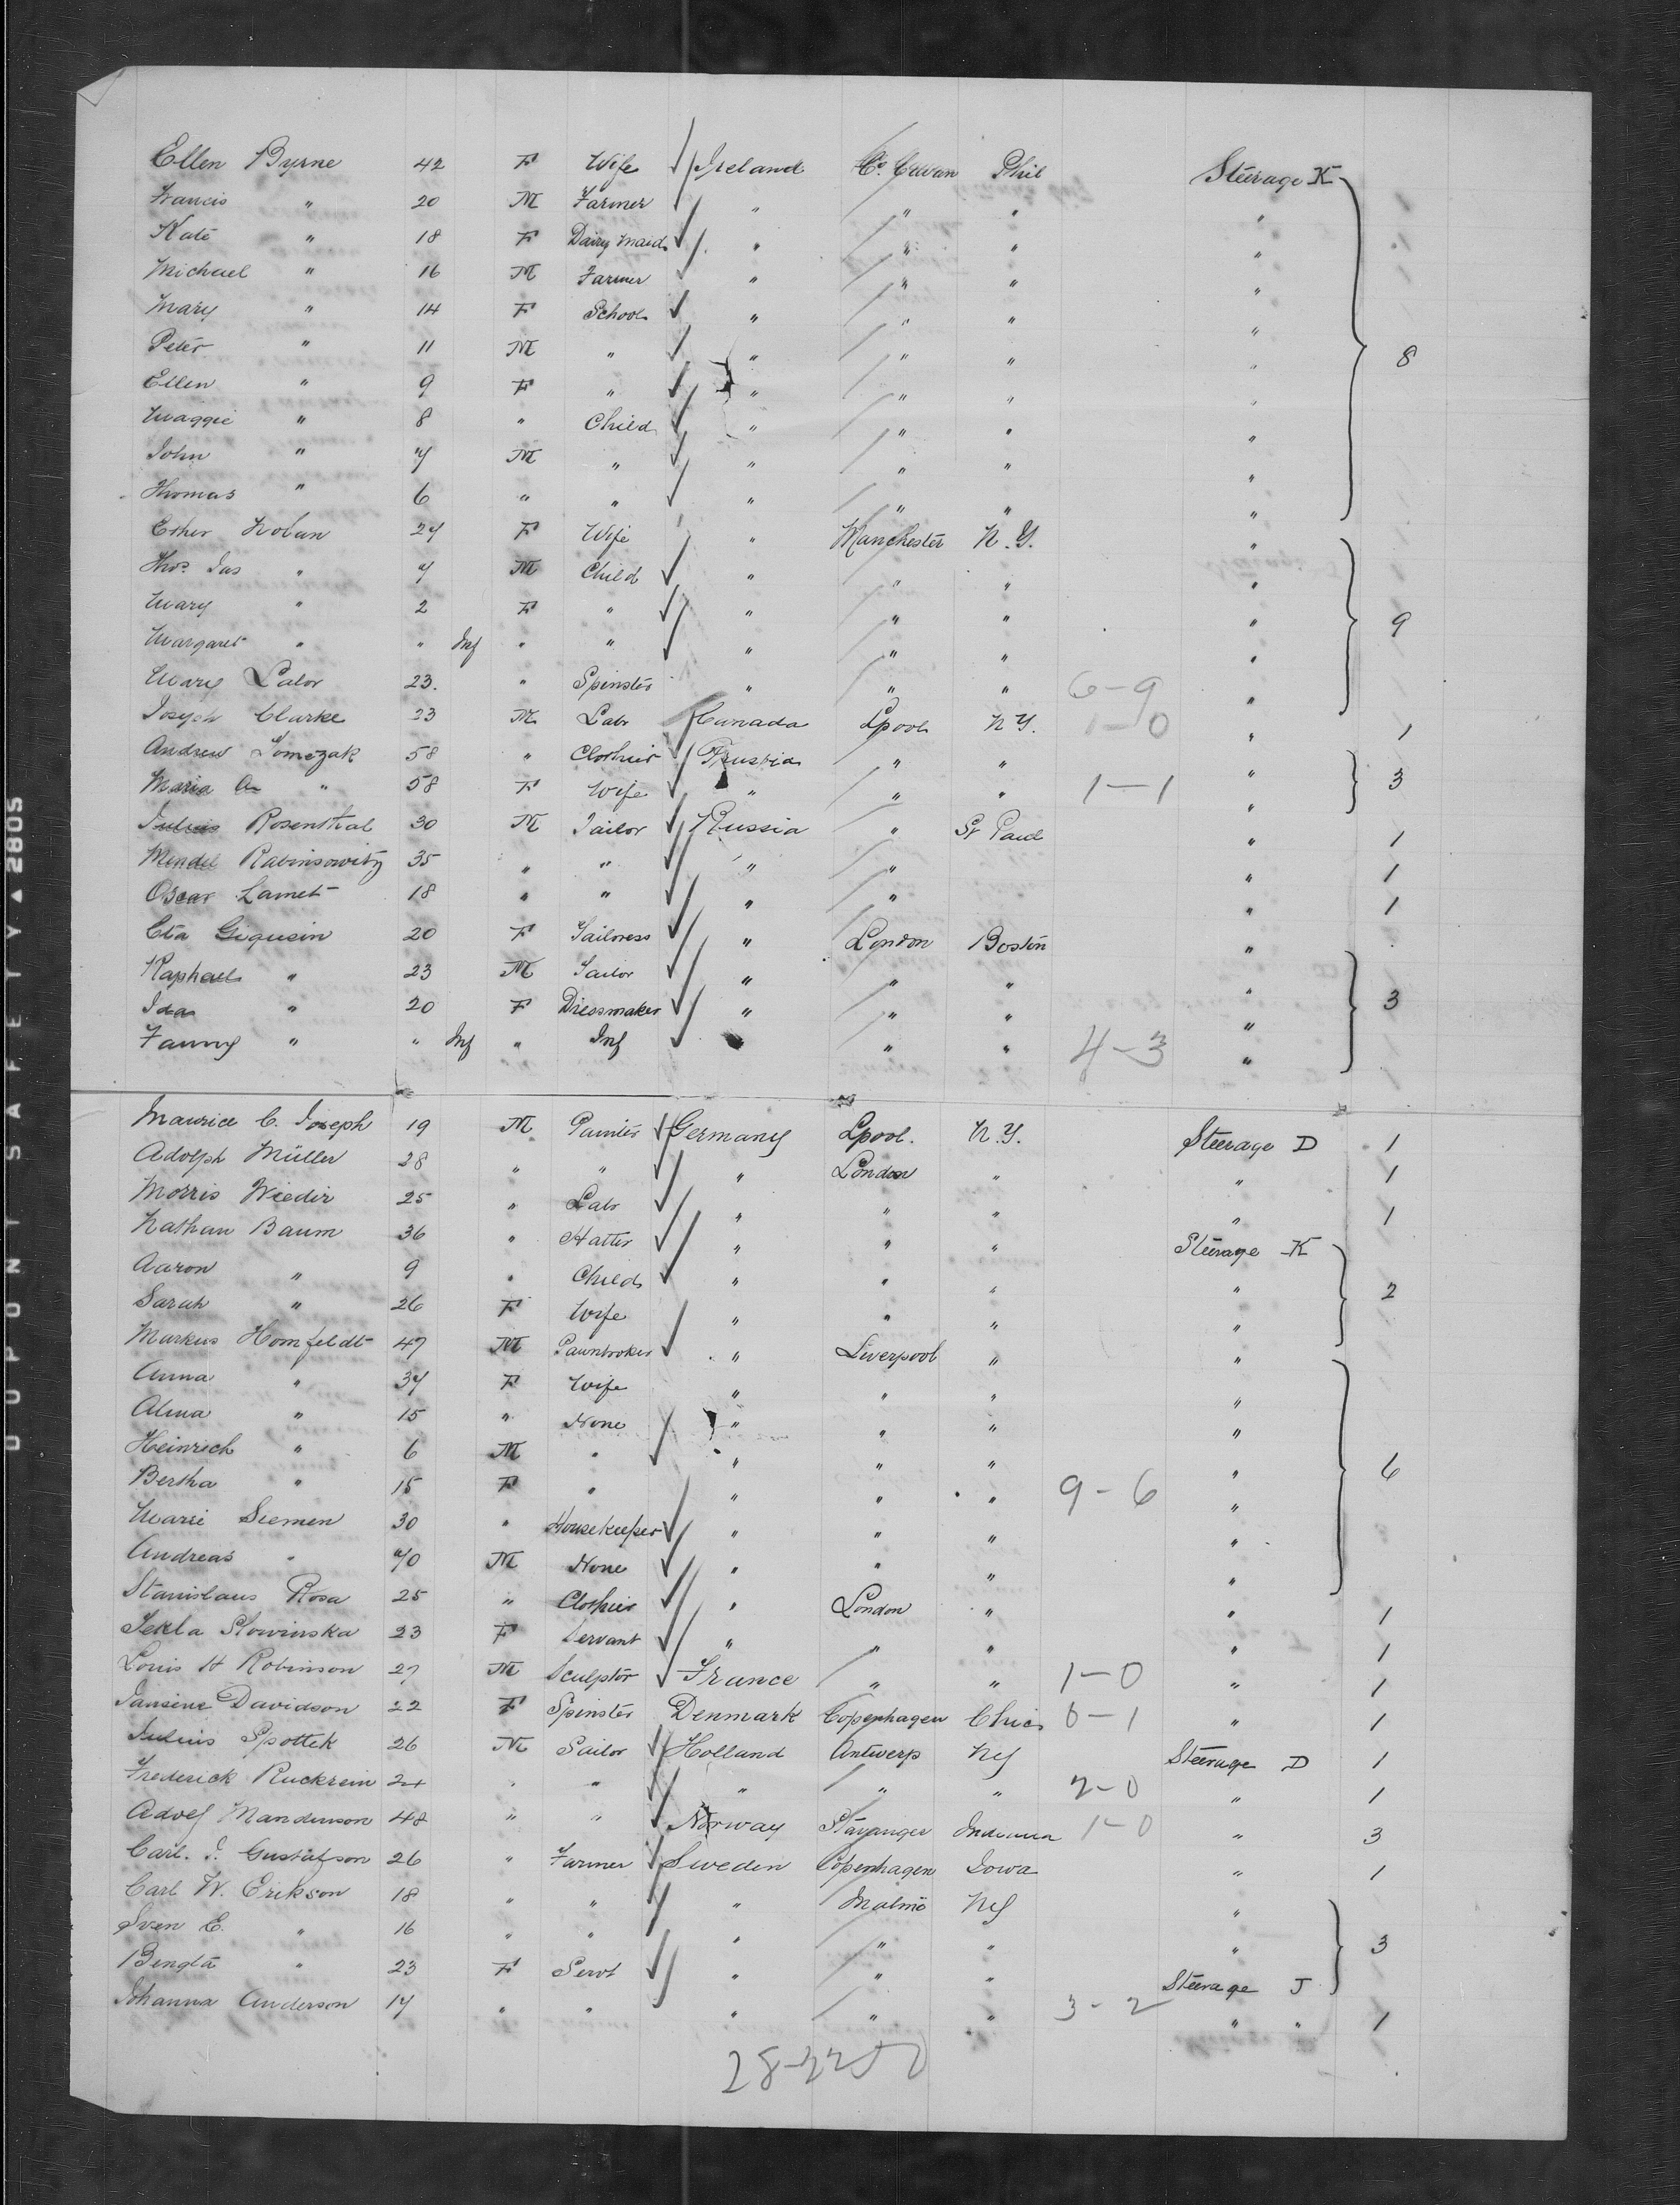 Ellen Byrne 42 F Wife Ireland Co. Cavan Phil Steerage K
Francis " 20 M Farmer " " " "
Kate " 18 F Dairy Maid " " " "
Michael " 16 M Farmer " " " "
Mary " 14 F School " " " "
Peter " 11 M " " " " " 8
Ellen " 9 F " " " " "
Maggie " 8 " Child " " " "
John " 7 M " " " " "
Thomas " 6 " " " " " "
Esther Nolan 27 F Wife " Manchester N.Y. "
Thos. Jas " 7 M Child " " " "
Mary " 2 F " " " " " 9
Margaret " " Inf " " " " " "
Mary Lalor 23. " Spinster " " " 6-9 "
Joseph Clarke 23 M Labr Canada Lpool N.Y. 1-0 " 1
Andrew Tomczak 58 " Clothier Prussia " " " 3
Maria A " 58 F Wife " " " 1-1 "
Julius Rosenthal 30 M Tailor Russia " St Paul " 1
Mendel Rabinsowitz 35 " " " " " 1
Oscar Lamet 18 " " " " " 1
Eta 20 F Tailoress " London Boston "
Raphael " 23 M Tailor " " " "
Ida " 20 F Dressmaker " " " " 3
Fanny " " Inf " Inf " " " 4-3 "
Maurice C. Joseph 19 M Painter Germany Lpool. N.Y. Steerage D 1
Adolph Müller 28 " " " London " " 1
Morris Wieder 25 " Labr " " " " 1
Nathan Baum 36 " Hatter " " " Steerage K
Aaron " 9 " Child " " " " 2
Sarah " 26 F Wife " " " "
Markus Homfeldt 47 M Pawnbroker " Liverpool " "
Anna " 37 F Wife " " " "
Alma " 15 " None " " " "
Heinrich " 6 M " " " " " 6
Bertha " 15 F " " " " 9-6 "
Marie Siemen 30 " Housekeeper " " " "
Andreas " 70 M None " " " "
Stanislaus Rosa 25 " Clothier " London " " 1
Tekla Slowinska 23 F Servant " " " " 1
Louis H Robinson 27 M Sculptor France " " 1-0 " 1
Jansine Davidson 22 F Spinster Denmark Copenhagen Chic 0-1 " 1
Julius Spottek 26 M Sailor Holland Antwerp NY Steerage D 1
Frederick Ruckrein 24 " " " " " 2-0 " 1
Adolf Manderson 48 " " Norway Stavanger Indiana 1-0 " 3
Carl. J. Gustafson 26 " Farmer Sweden Copenhagen Iowa " 1
Carl W. Erikson 18 " " " Malmö NY "
Sven E. " 16 " " " " " " 3
Bengta " 23 F Servt " " " Steerage J
Johanna Anderson 17 " " " " " 3-2 " " 1